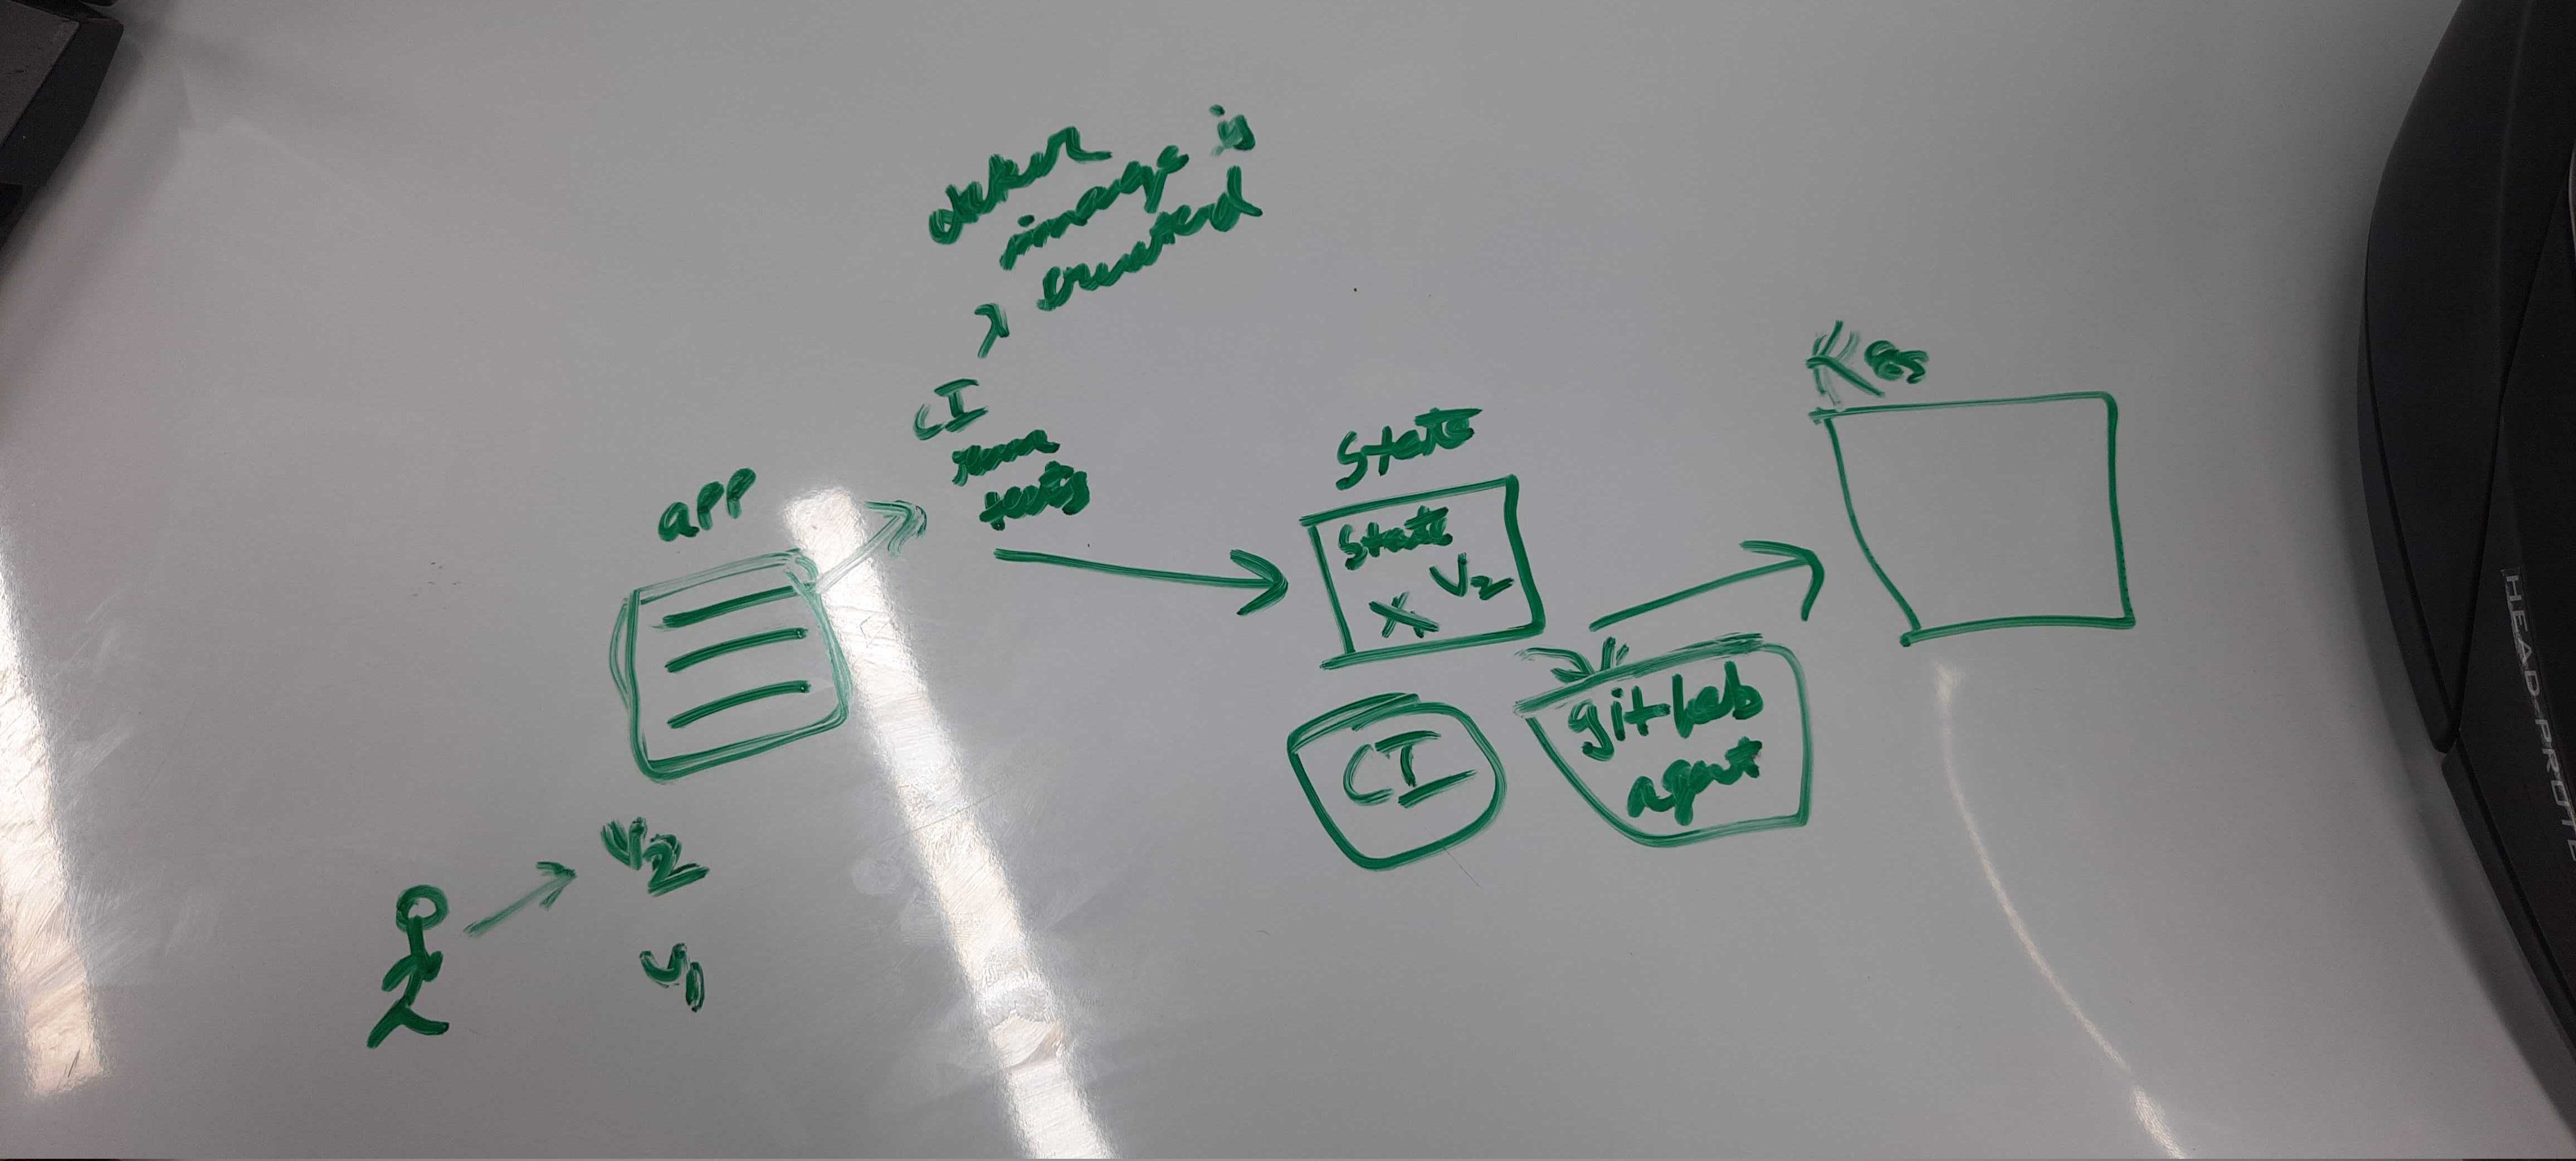 docker
image is
created
CI
runs
tests
app
State
State
X V2
K8s
CI
gitlab
agent
V2
V1
HEAD-PROTE